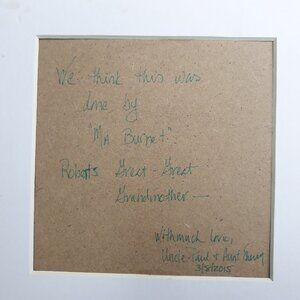 We think this was
done by
"MA Burnet".
Robert's Great-Great
Grandmother —
With much Love,
Uncle Paul & Aunt
3/5/2015